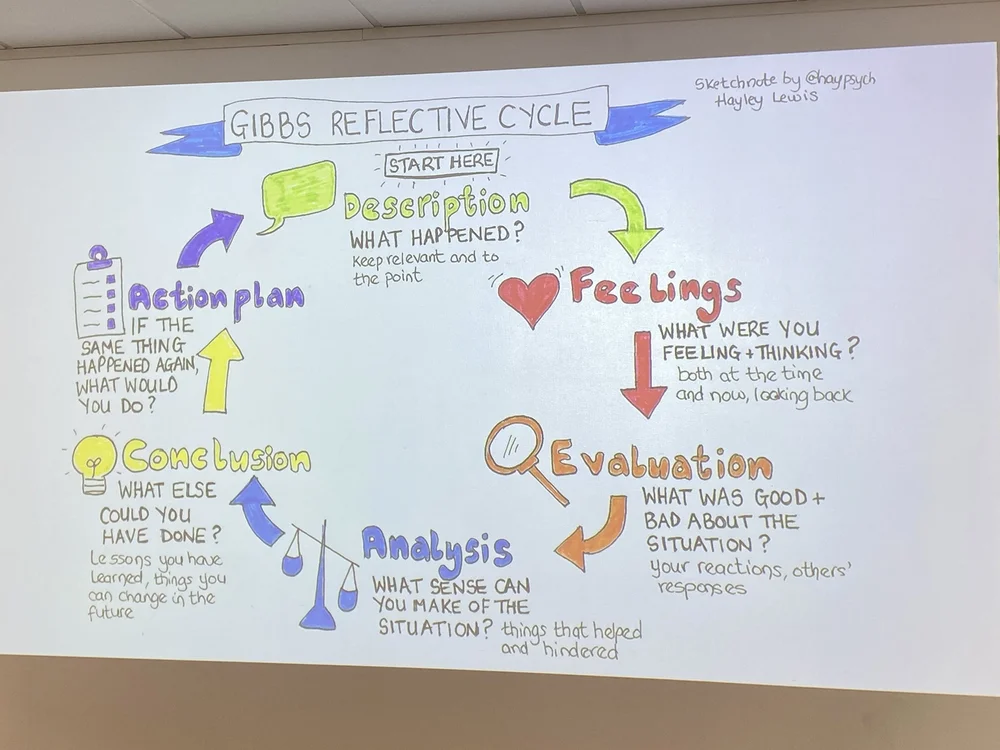 Sketchnote by @haypsych
Hayley Lewis
GIBBS REFLECTIVE CYCLE
START HERE
Description
WHAT HAPPENED?
Keep relevant and to
the point
Feelings
WHAT WERE YOU
FEELING + THINKING?
both at the time
and now, looking back
Evaluation
WHAT WAS GOOD +
BAD ABOUT THE
SITUATION?
your reactions, others'
responses
Analysis
WHAT SENSE CAN
YOU MAKE OF THE
SITUATION? things that helped
and hindered
Conclusion
WHAT ELSE
COULD YOU
HAVE DONE?
Lessons you have
learned, things you
can change in the
future
Action plan
IF THE
SAME THING
HAPPENED AGAIN,
WHAT WOULD
YOU DO?